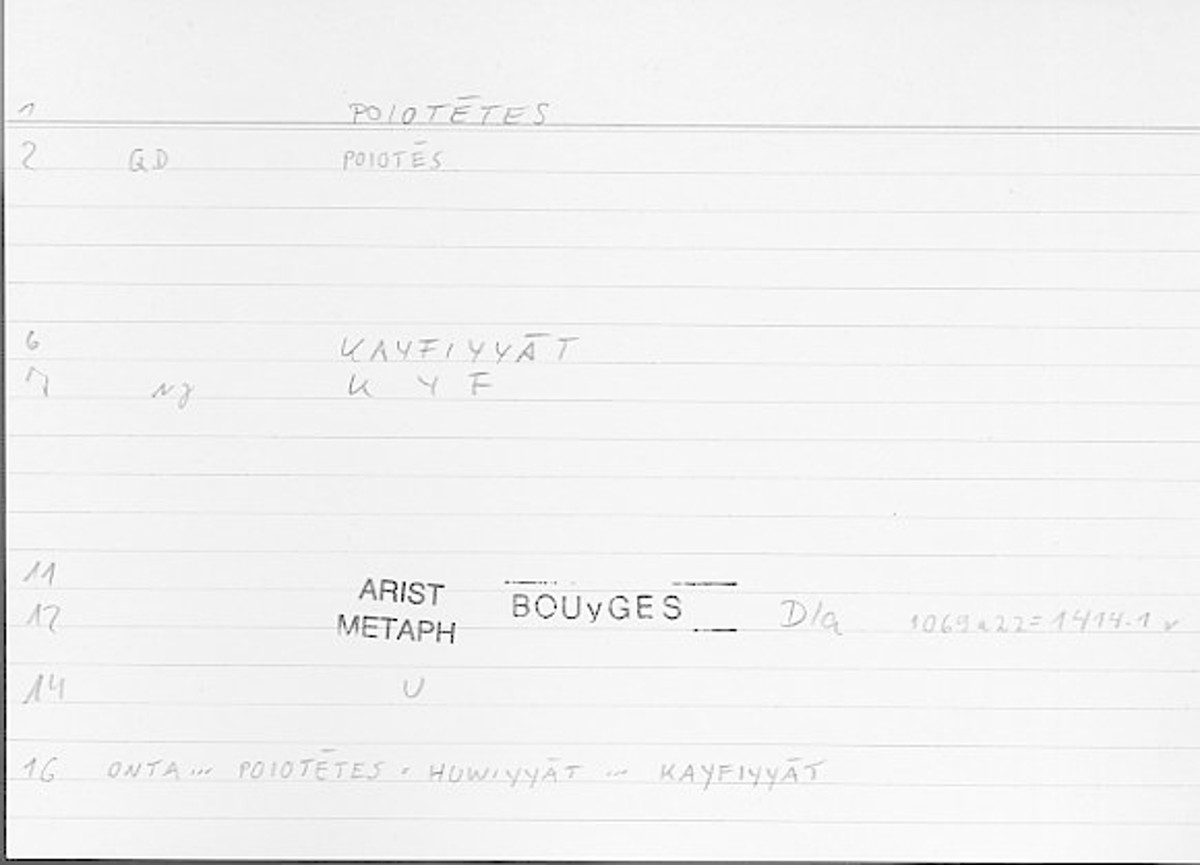 1 POIOTĒTES
2 QD POIOTĒS
6 KAYFIYYĀT
7 NJ K Y F
11 ARIST BOUyGES
12 METAPH D/a 1069a22=1414.1
14 U
16 ONTA... POIOTĒTES · HUWIYYĀT ... KAYFIYYĀT